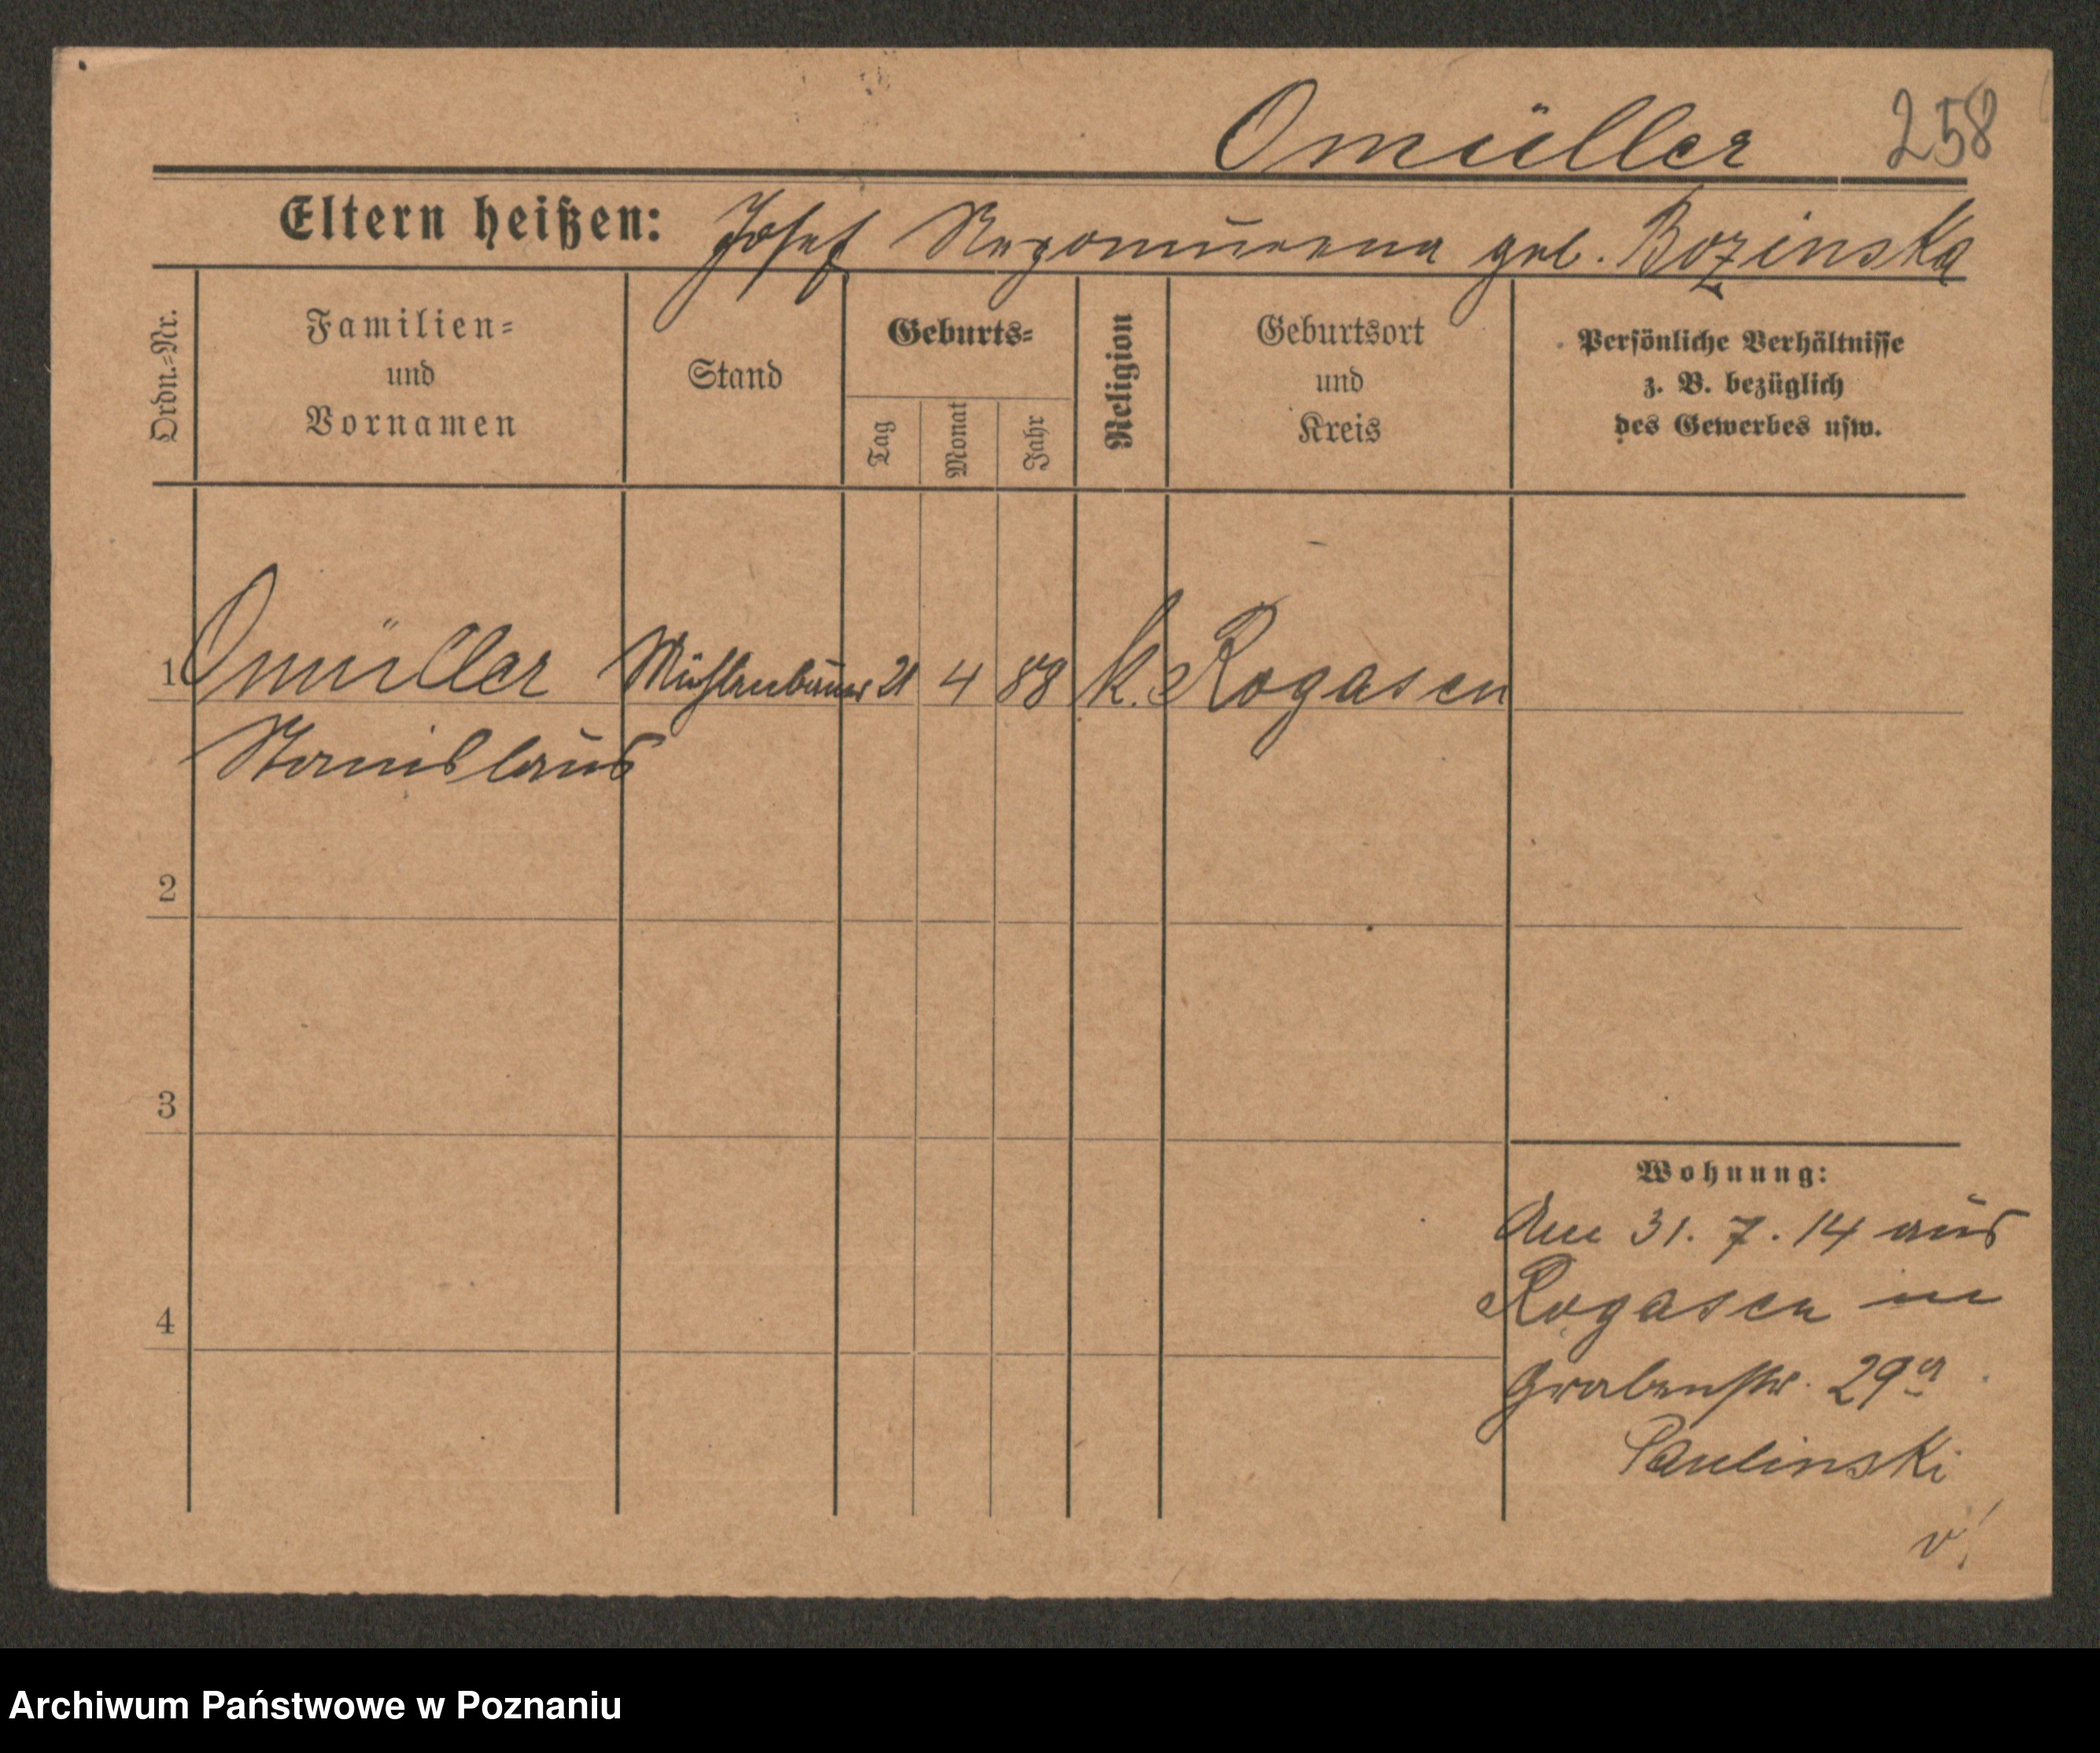 Omüller 258
Eltern heißen: Josef Nepomucena geb. Bozinska
Ordn.-Nr.
Familien-
und
Vornamen
Stand
Geburts-
Tag
Monat
Jahr
Religion
Geburtsort
und
Kreis
Persönliche Verhältnisse
z. B. bezüglich
des Gewerbes usw.
1 Omüller Mühlenbauer 21 4 88 k. Rogasen
Stanislaus
2
3
4
Wohnung:
Am 31. 7. 14 aus
Rogasen in
Grabenstr. 29a
Paulinski
v!
Archiwum Państwowe w Poznaniu